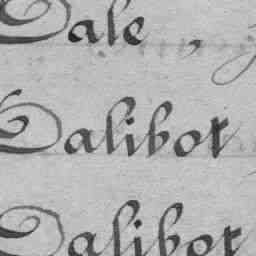 Dale ,
Dalibot
Dalibot